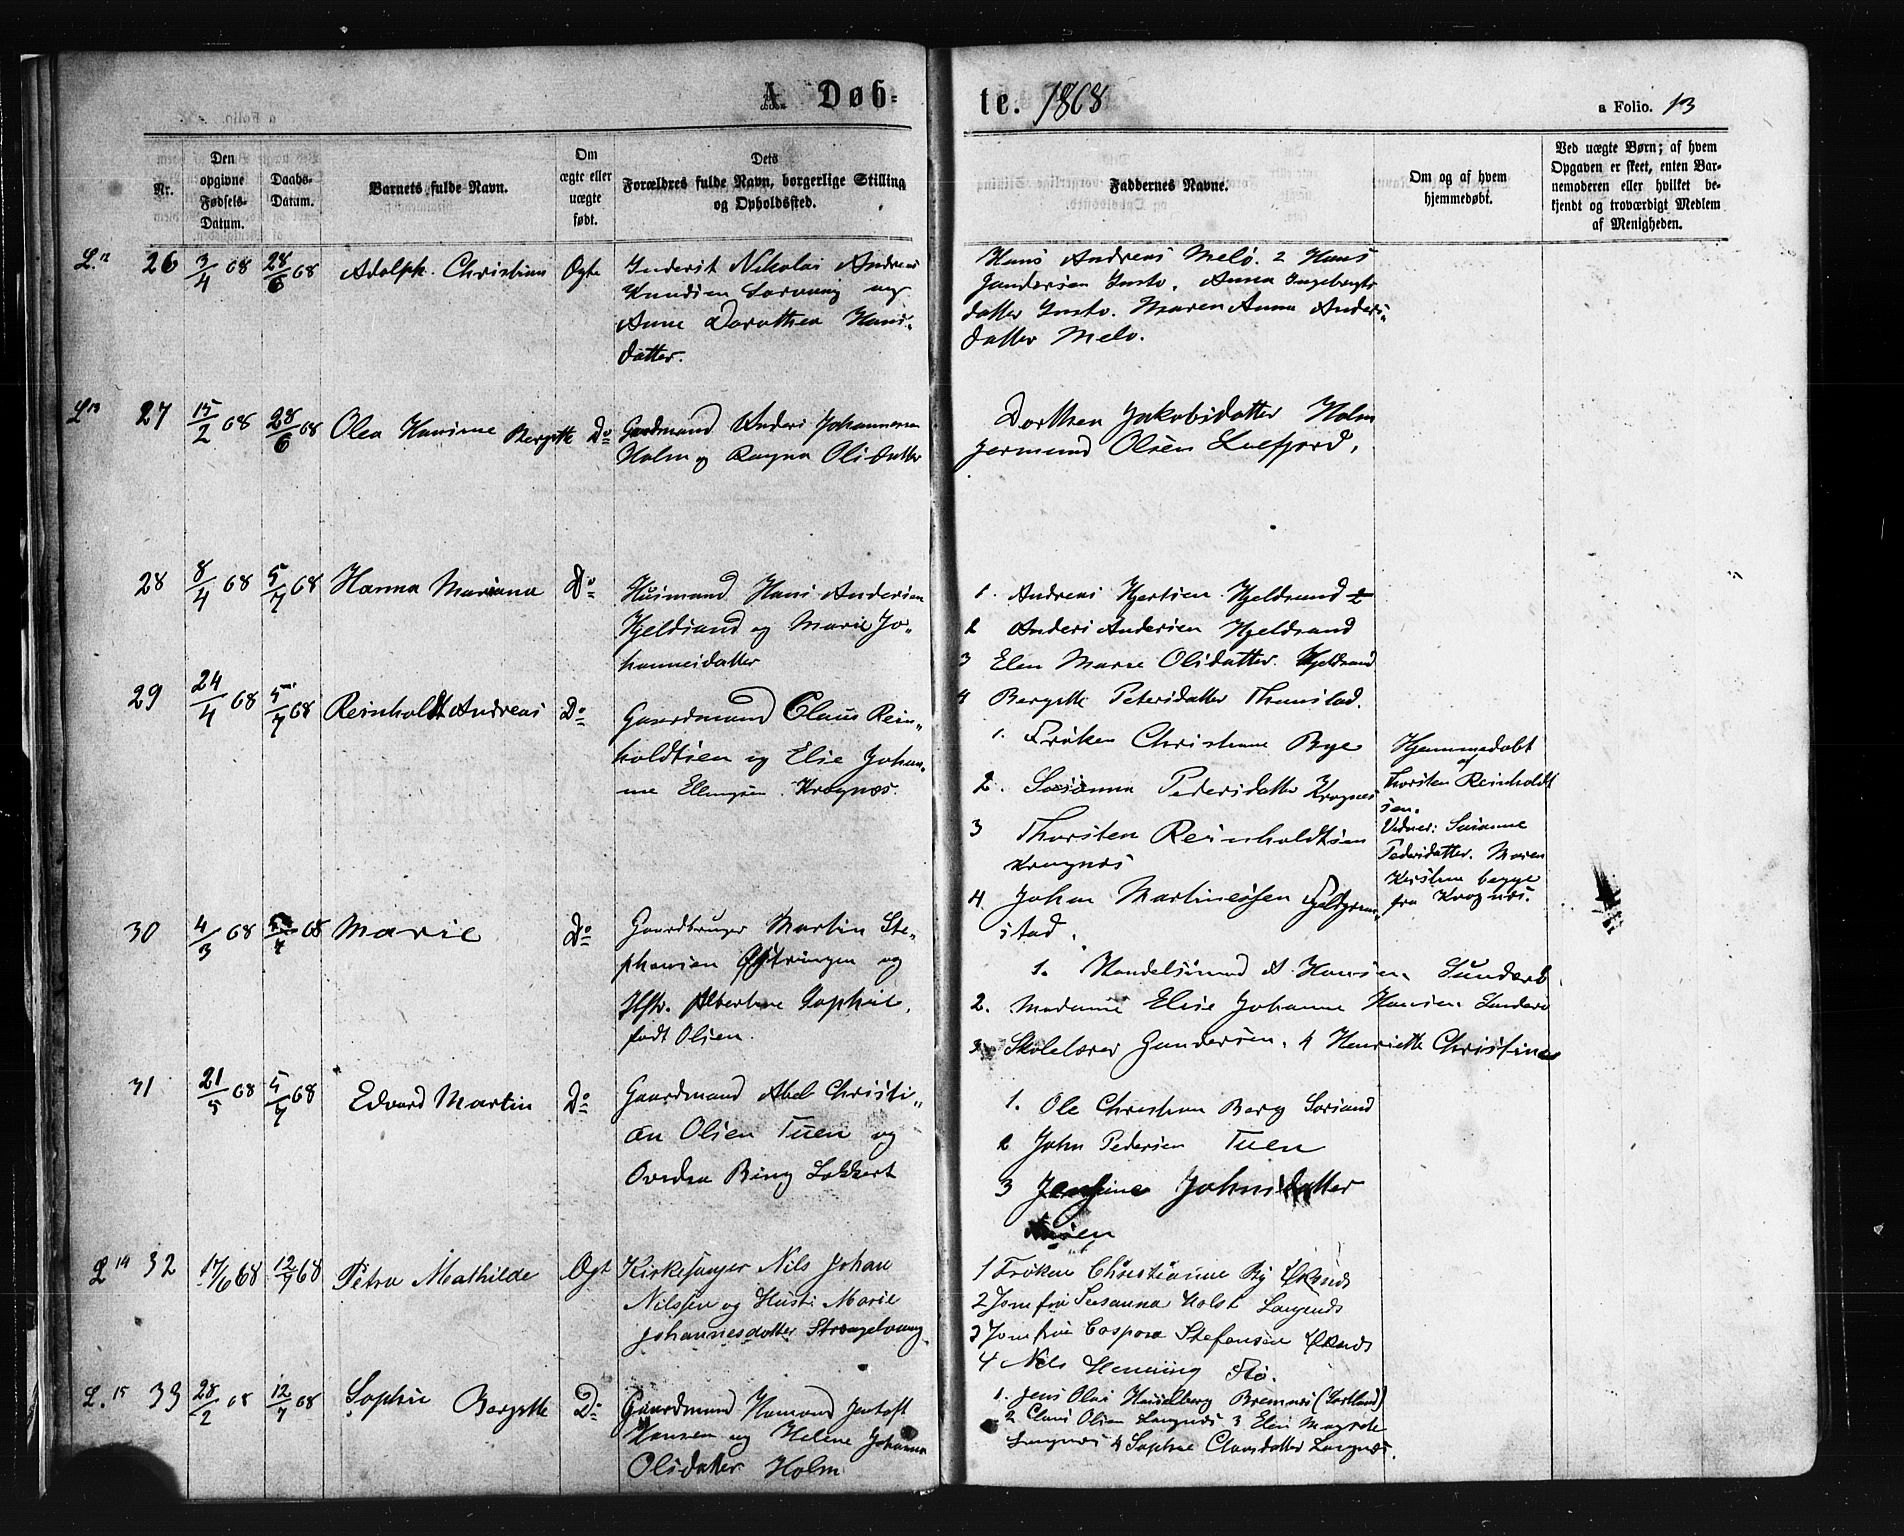 A. Døb-
te. 1868
a Folio. 13
Nr.
Den
opgivne
Fødsels-
Datum.
Daabs-
Datum.
Barnets fulde Navn.
Om
ægte eller
uægte
født.
Dets
Forældres fulde Navn, borgerlige Stilling
og Opholdssted.
Faddernes Navne.
Om og af hvem
hjemmedøbt.
Ved uægte Børn; af hvem
Opgaven er skeet, enten Bar-
nemoderen eller hvilket be-
kjendt og troværdigt Medlem
af Menigheden.
L. 12 26 3/4 68 28/6 68 Adolph Christian Ægte
Inderst Nikolai Andreas
Knudsen og
Anne Dorothea Hans-
datter.
Hans Andreas Melø. 2 Hans
Anna Ingebrigts
datter Maren Anna Anders-
datter Melø.
L 13 27 15/2 68 28/6 68 Olea Hansine Bergitte Do
Gaardmand Anders Johannesen
Holm og Ragna Olsdatter
Dorthea Jakobsdatter Holm
Jermund Olsen
28 8/4 68 5/7 68 Hanna Mariana Do
Husmand Hans Andersen
Kjeldsand og Marie Jo-
hannesdatter
1. Andreas Kjeldsand 2
2 Anders Andersen Kjeldsand
3 Elen Marie Olsdatter Kjeldsand
4 Bergitte Petersdatter
29 24/4 68 5/7 68 Reinholdt Andreas Do
Gaardmand Claus Rein-
holdtsen og Elise Johan-
ne Ellingsen Kragnæs
1. Frøken Christiane Bye
2. Susanna Pedersdatter Kragnæs
3 Thorsten Reinholdtsen
Kragnæs
4 Johan Martinesen
stad.
Hjemmedøbt
af
Thorsten Reinholdt
sen.
Vidner: Susanne
Pedersdatter. Maren
Kirstine begge
fra Kragnæs.
30 4/3 68 5/7 68 Marie Do
Gaardbruger Martin Ste-
phansen og
Hstr. Albertine Sophie,
født Olsen.
1. Handelsmand A Hansen
2. Madame Elise Johanne Hansen
3 Skolelærer Gundersen. 4 Henriette Christine
31 21/5 68 5/7 68 Edvard Martin Do
Gaardmand Abel Christi-
an Olsen Tuen og
Ovedia Bing Lokkert
1. Ole Christian Berg
2 John Pedersen Tuen
3 Jensine Johnsdatter
Tuen
L 14 32 17/6 68 12/7 68 Petra Mathilde Ægt
Kirkesanger Nils Johan
Nilssen og Hustr Marie
Johannesdatter
1 Frøken Christianne By Øksnæs
2 Jomfru Susanna Holst Langnæs
3 Jomfru Caspora Stefansen Øksnæs
4 Nils Henning Stø.
L. 15 33 28/2 68 12/7 68 Sophie Bergitte Do
Gaardmand Hamond Jentoft
Hansen og Helene Johanna
Olsdatter Holm
1. Jens Olai Hasselberg Bremnes (Sortland)
2 Claus Olsen Langnæs 3 Elen Magrete
Langnæs 4 Sophie Clausdatter Langnæs.